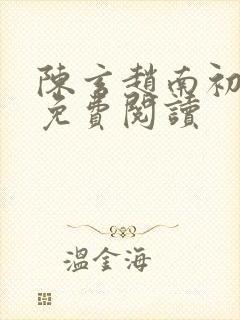 陳言趙南初
免費閱讀
溫金海